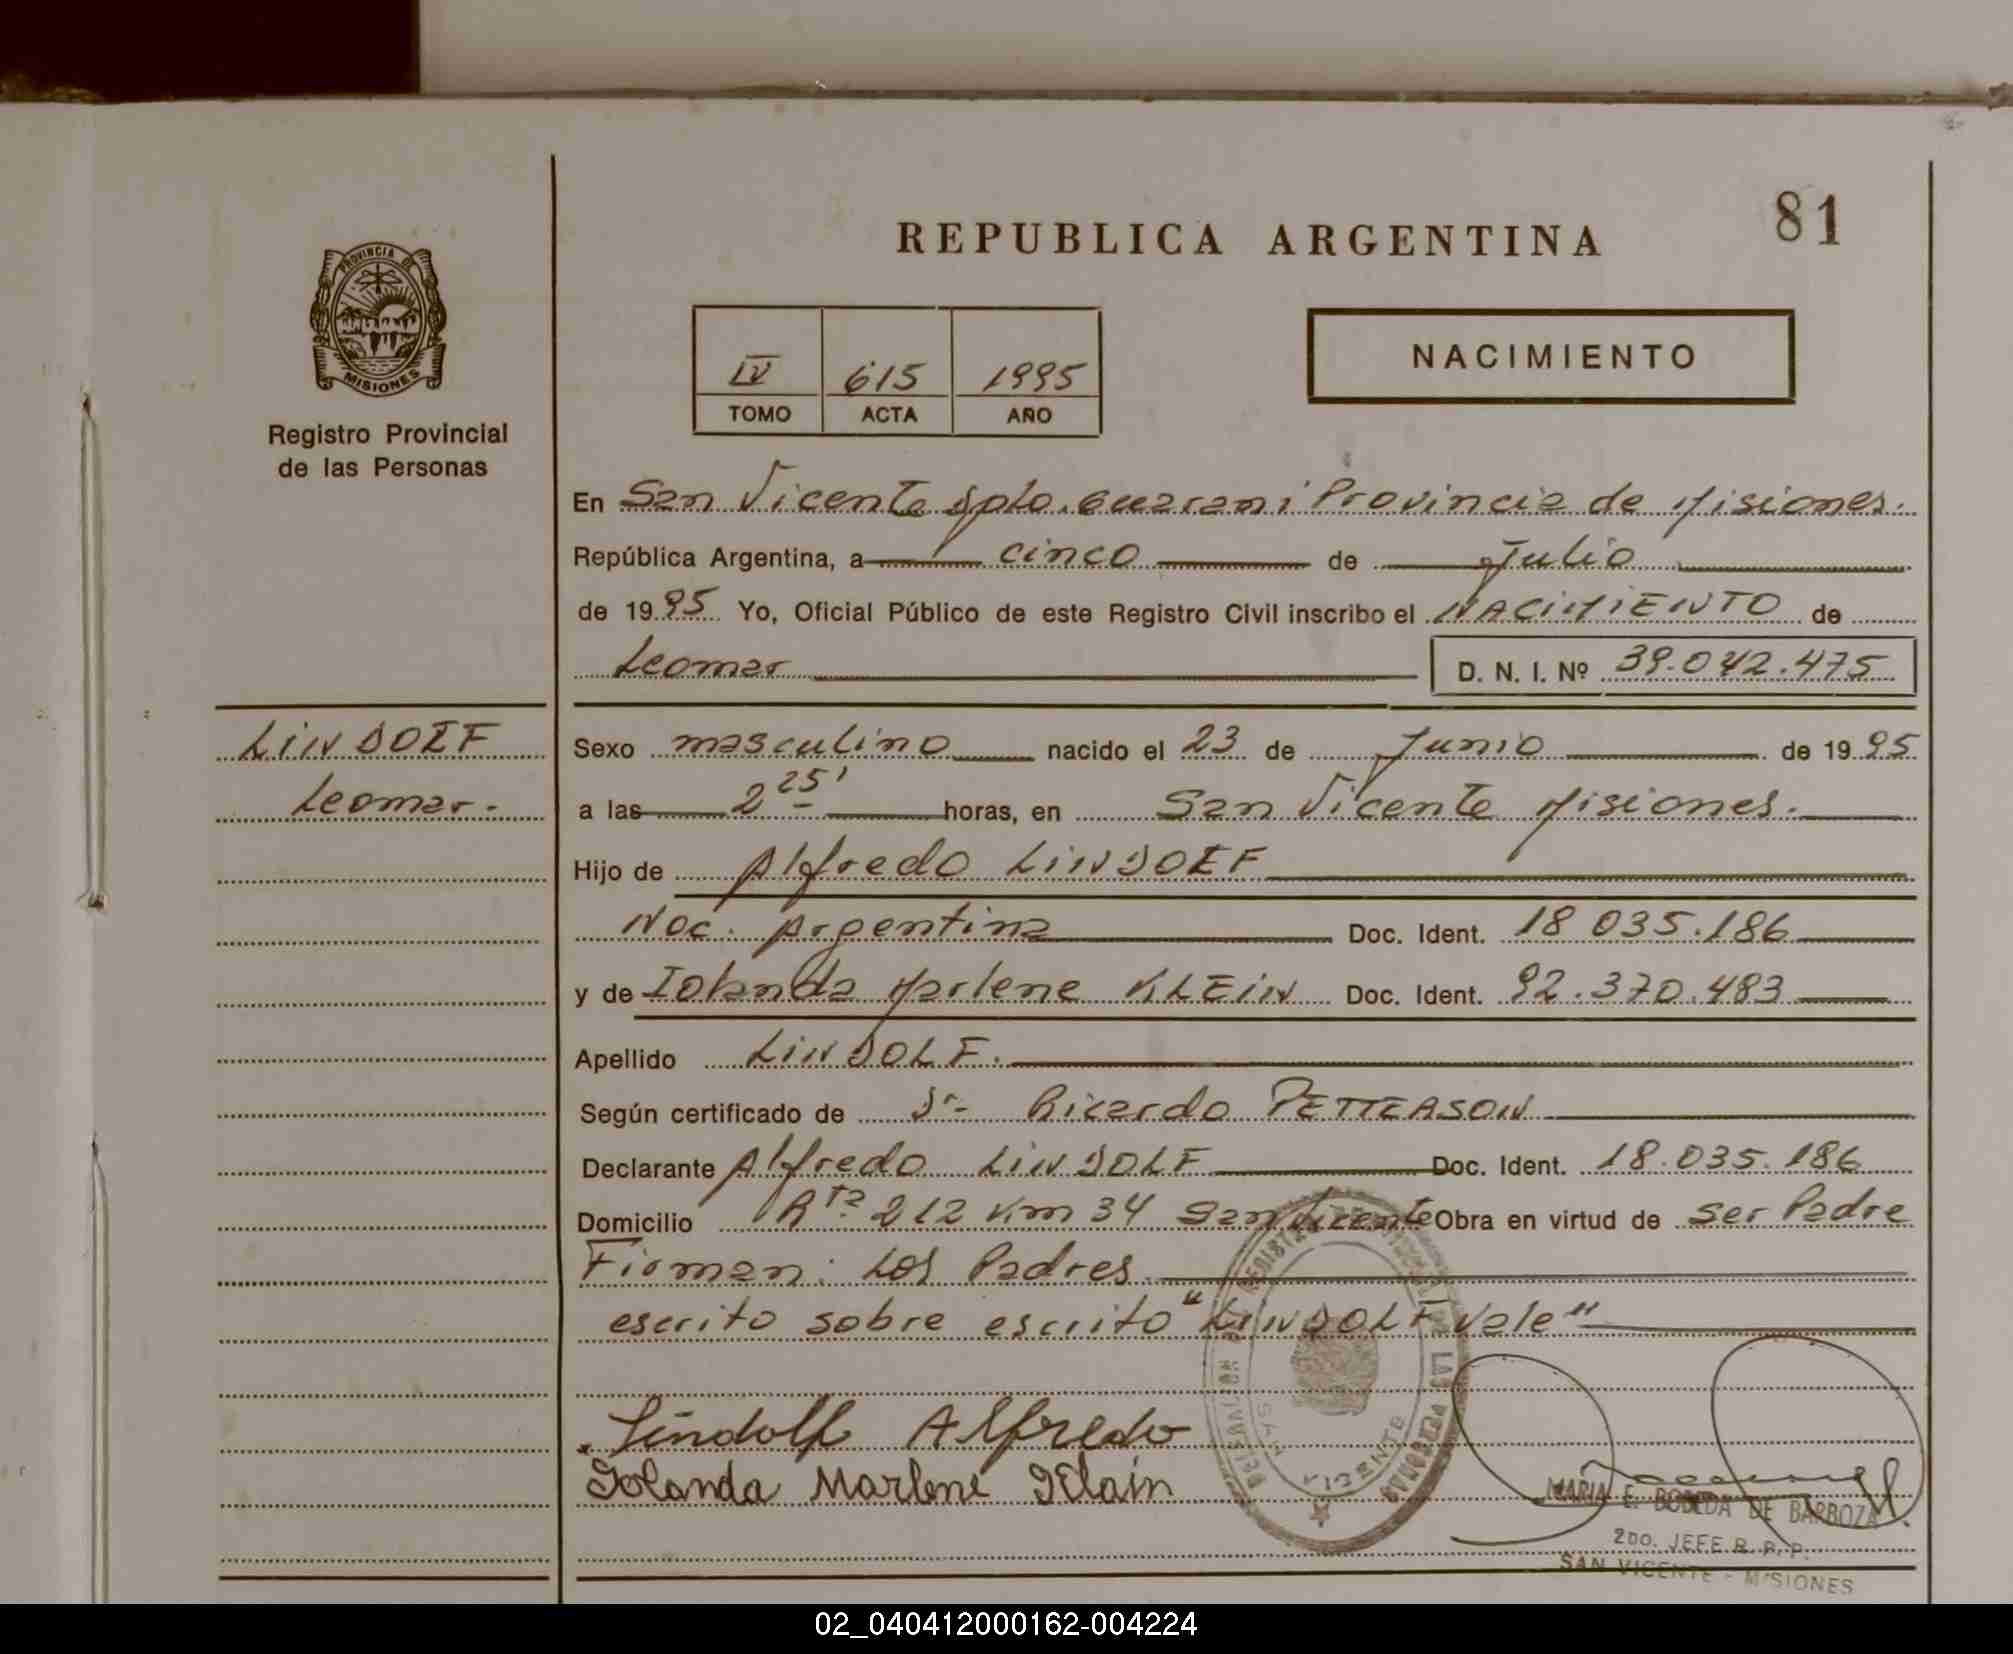 81
REPUBLICA ARGENTINA
PROVINCIA DE
MISIONES
Registro Provincial
de las Personas
IV 615 1995
TOMO ACTA AÑO
NACIMIENTO
En San Vicente Dpto. Guarani Provincia de Misiones.
República Argentina, a cinco de Julio
de 1995 Yo, Oficial Público de este Registro Civil inscribo el NACIMIENTO de
Leomar D. N. I. Nº 39.042.475
LINDOLF
Leomar.
Sexo masculino nacido el 23 de Junio de 1995
a las 2 25' horas, en San Vicente Misiones.
Hijo de Alfredo LINDOLF
Nac. Argentina Doc. Ident. 18 035.186
y de Iolanda Marlene KLEIN Doc. Ident. 92.370.483
Apellido LINDOLF.
Según certificado de Dr Ricardo PETTERSON
Declarante Alfredo LINDOLF Doc. Ident. 18.035.186
Domicilio Rta 212 Km 34 San Vicente Obra en virtud de ser Padre
Firman: Los Padres
escrito sobre escrito "LINDOLF Vale"
Lindolf Alfredo
Iolanda Marlene Klain
SAN VICENTE
MARIA E. BOBEDA DE BARBOZA
2DO. JEFE R. P. P.
SAN VICENTE - MISIONES
02_040412000162-004224